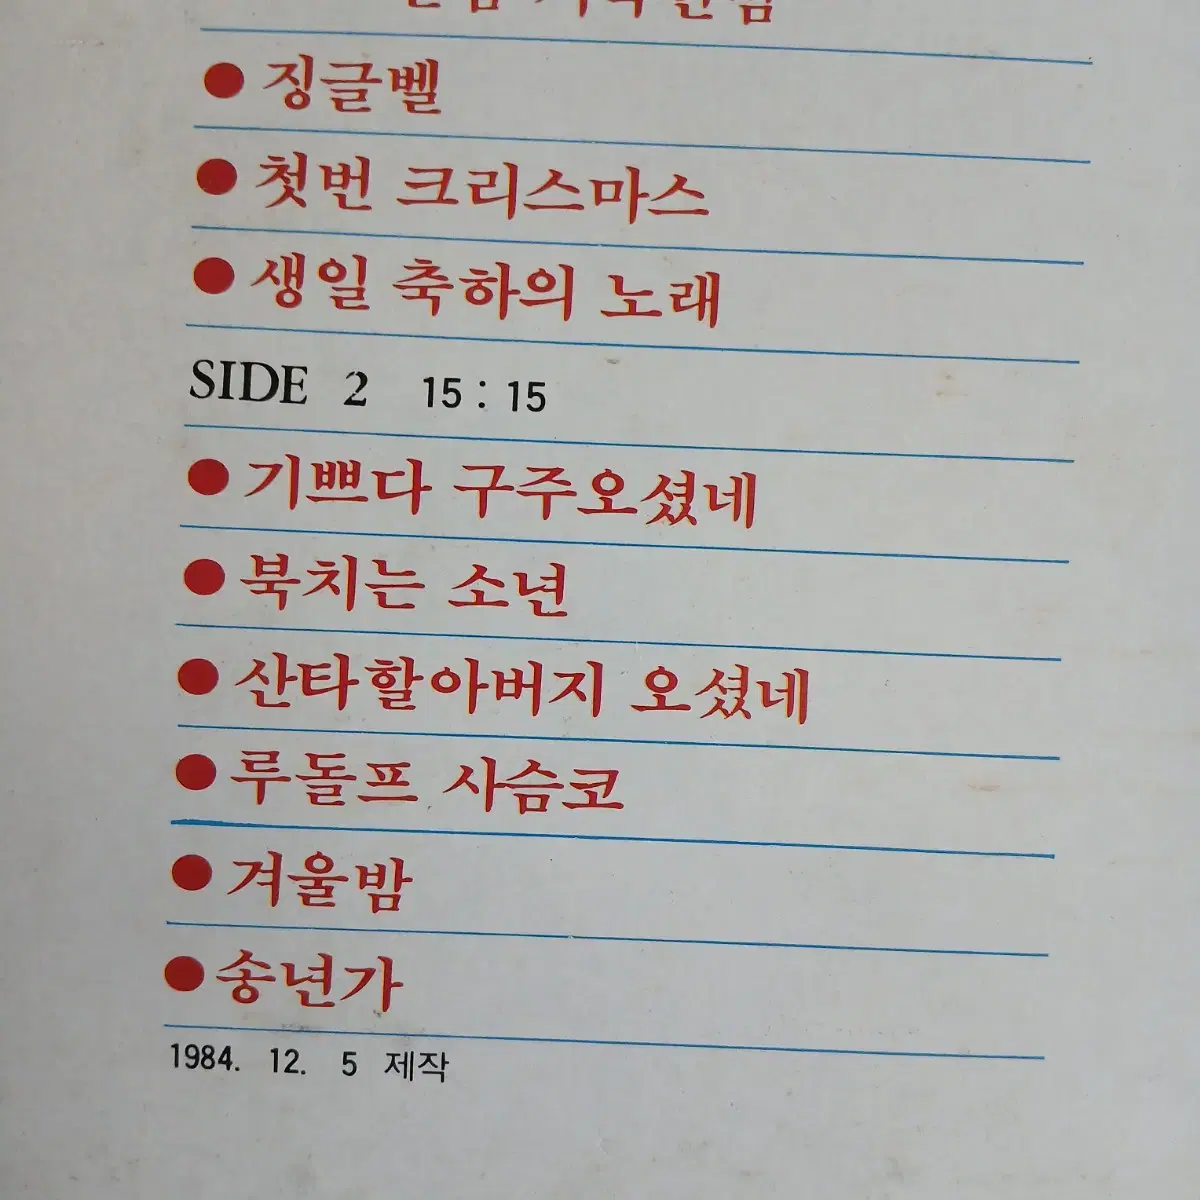 ● 징글벨
● 첫번 크리스마스
● 생일 축하의 노래
SIDE 2 15 : 15
● 기쁘다 구주오셨네
● 북치는 소년
● 산타할아버지 오셨네
● 루돌프 사슴코
● 겨울밤
● 송년가
1984. 12. 5 제작